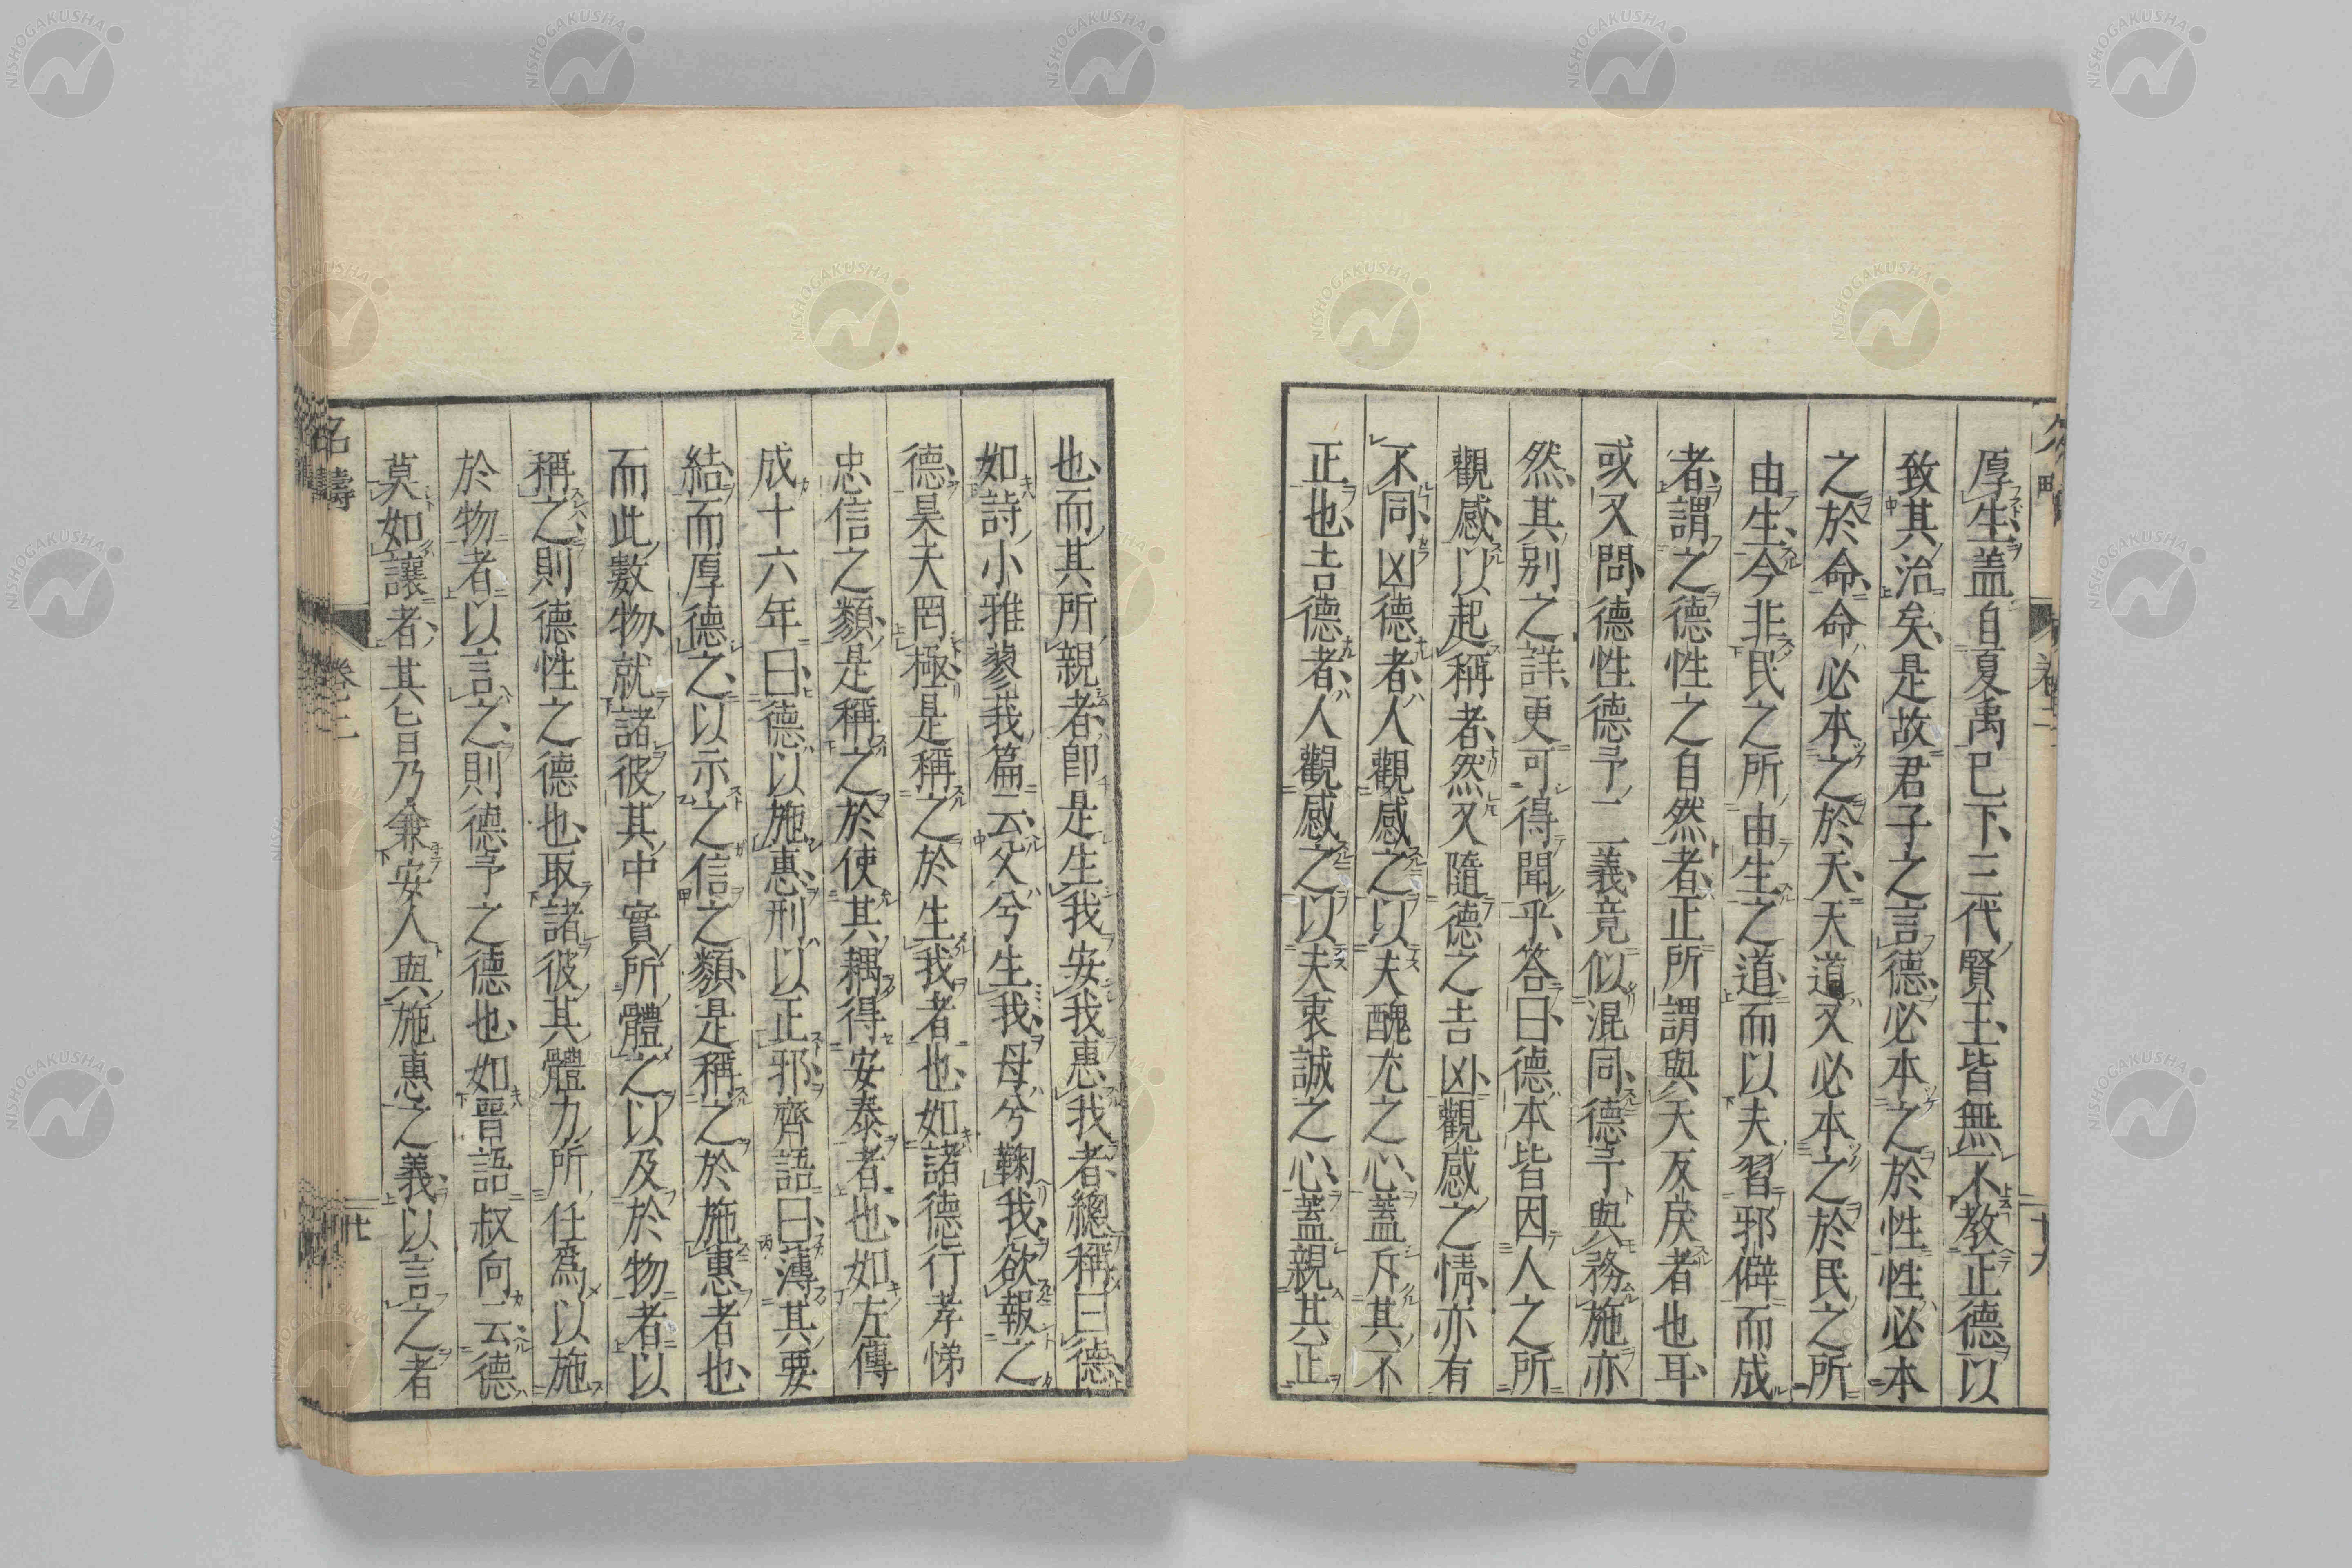 厚生蓋自夏禹已下三代賢王皆無不教正德以
致其治矣是故君子之言德必本之於性性必本
之於命命必本之於天天道又必本之於民之所
由生今非民之所由生之道而以夫習邪僻而成
者謂之德性之自然者正所謂與天反戾者也耳
或又問德性德予二義竟似混同德予與務施亦
然其別之詳更可得聞乎答曰德本皆因人之所
觀感以起稱者然又隨德之吉凶觀感之情亦有
不同凶德者人觀感之以夫醜充之心蓋斥其不
正也吉德者人觀感之以夫衷誠之心蓋親其正
也而其所親者即是生我安我惠我者總稱曰德
如詩小雅蓼莪篇云父兮生我母兮鞠我欲報之
德昊天罔極是稱之於生我者也如諸德行孝悌
忠信之類是稱之於使其耦得安泰者也如左傳
成十六年曰德以施惠刑以正邪齊語曰薄其要
結而厚德之以示之信之類是稱之於施惠者也
而此數物就諸彼其中實所體之以及於物者以
稱之則德性之德也取諸彼其體力所任為以施
於物者以言之則德予之德也如晉語叔向云德
莫如讓者其旨乃兼安人與施惠之義以言之者
名疇
卷二
廿
卷二
廿六
NISHOGAKUSHA